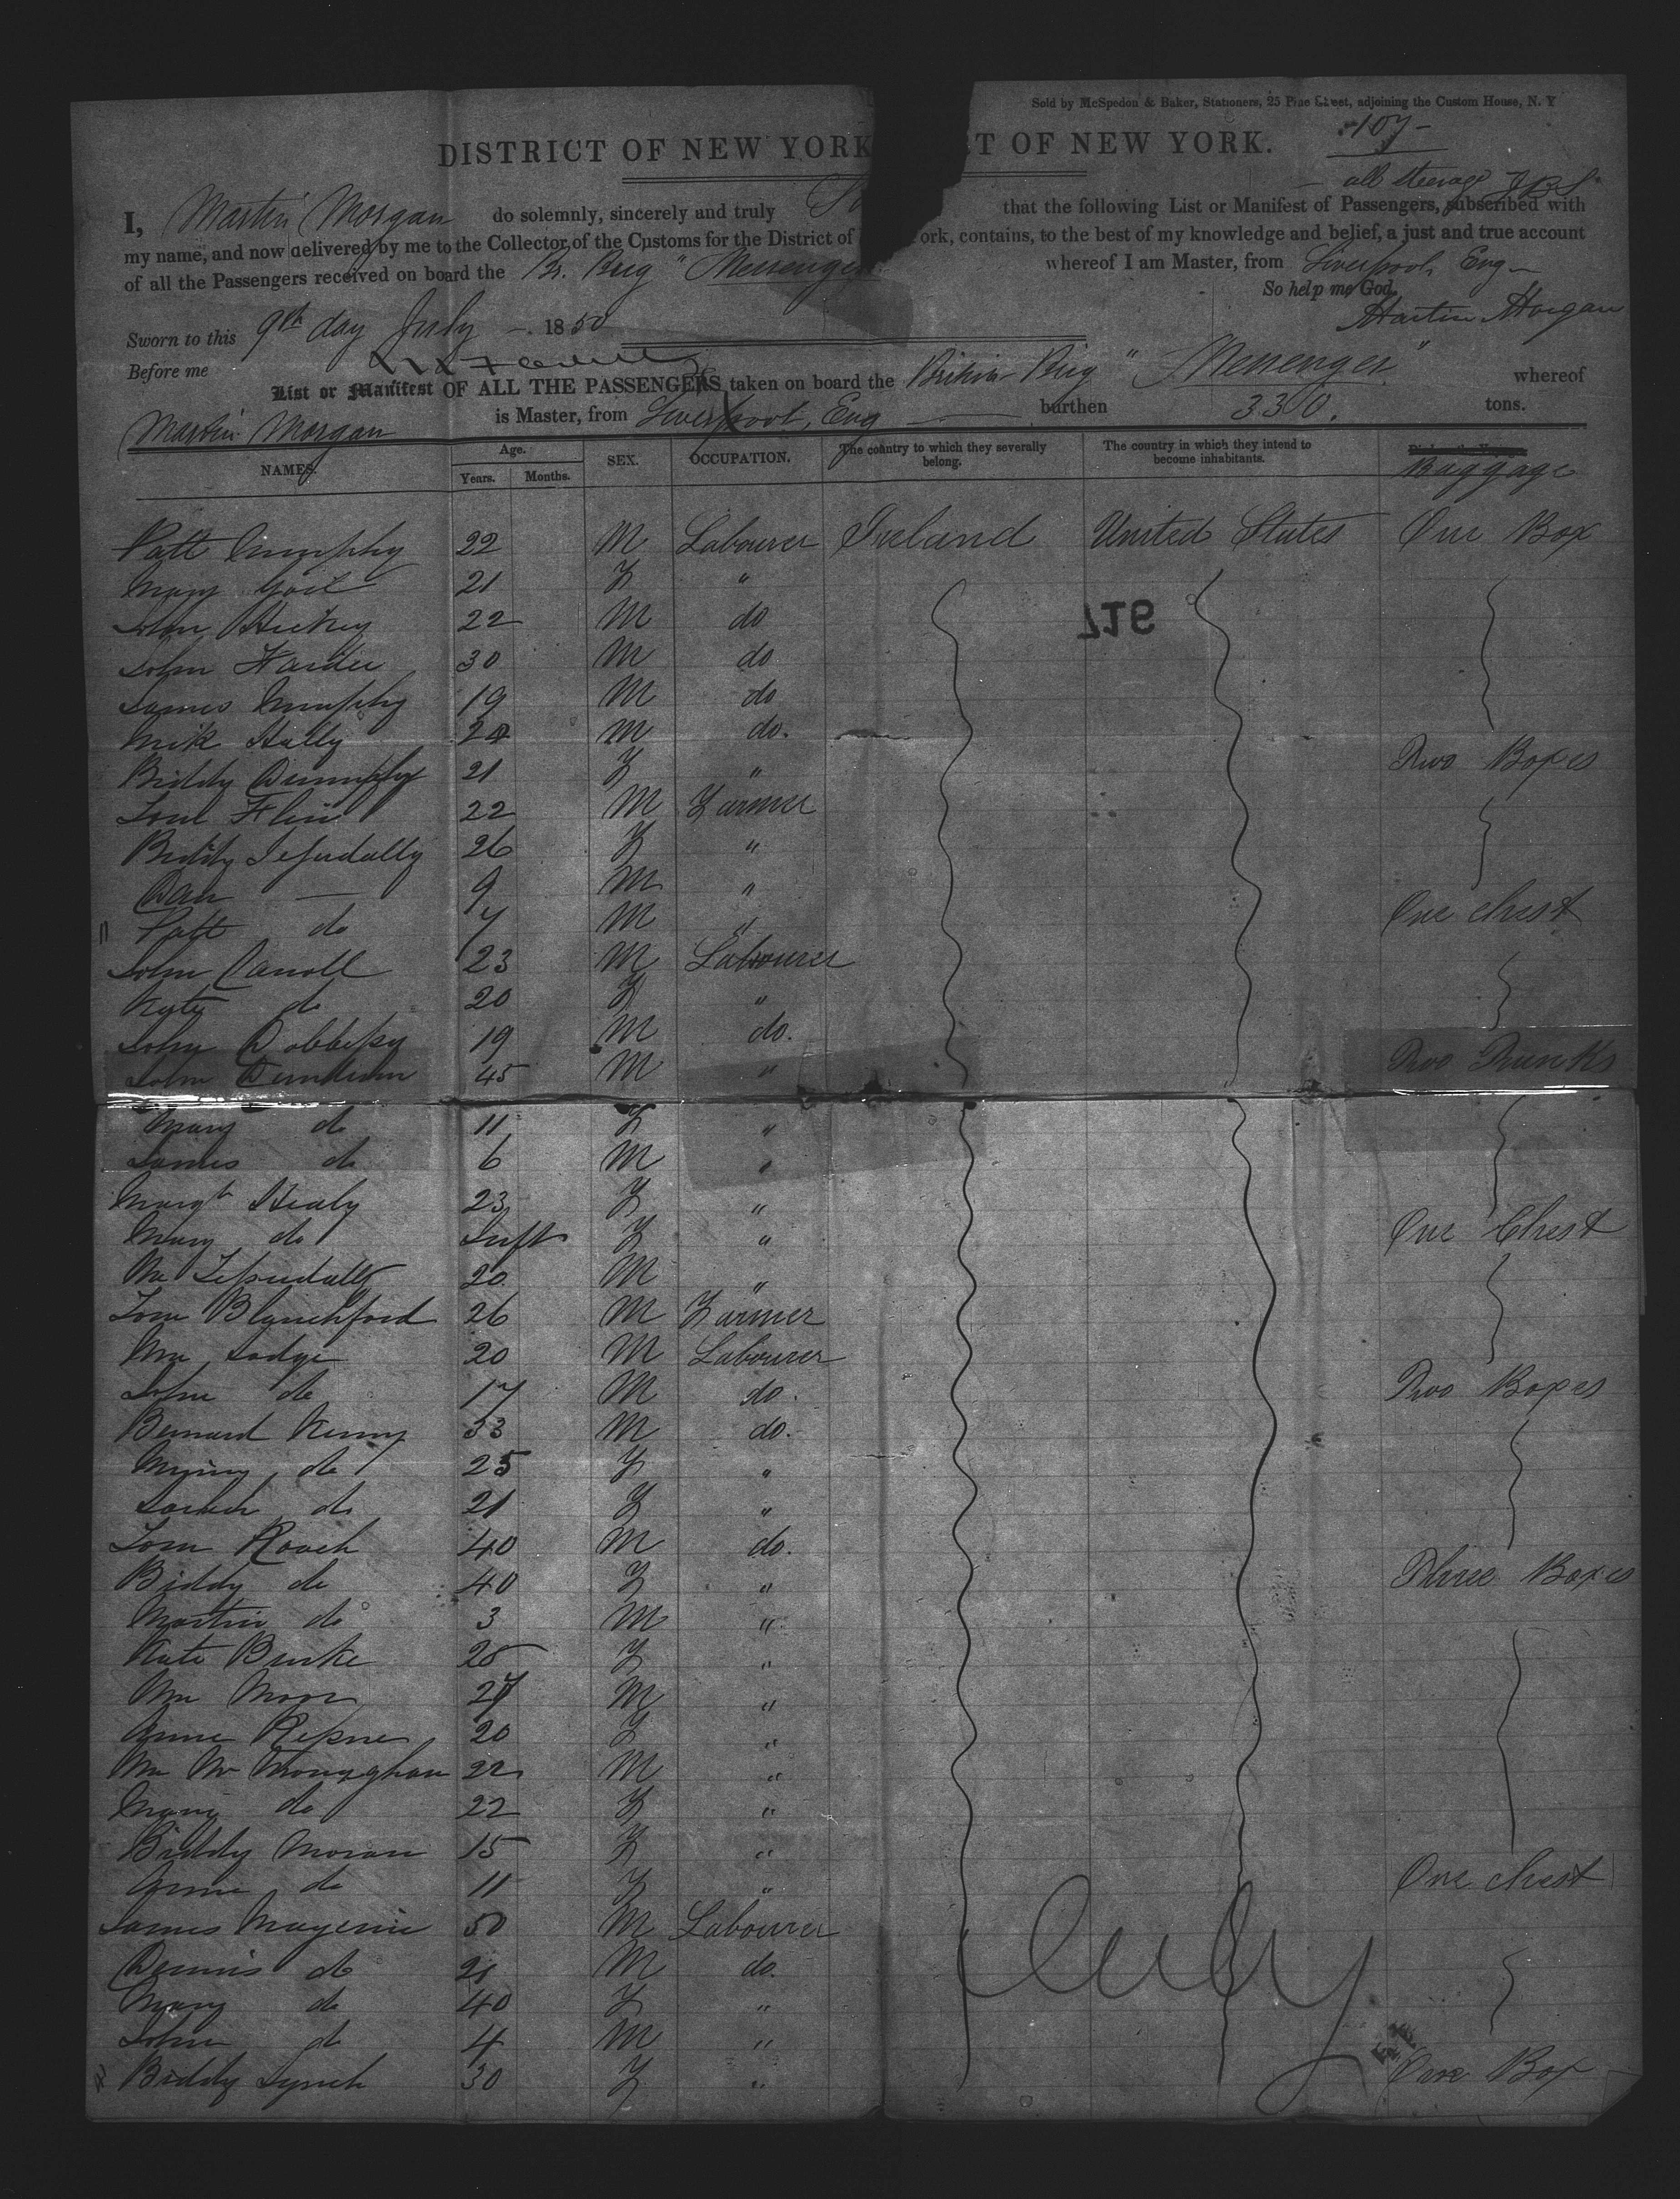 Sold by McSpedon & Baker, Stationers, 25 Pine Street, adjoining the Custom House, N. Y
-107-
DISTRICT OF NEW YORK RT OF NEW YORK.
all steerage
I, Martin Morgan do solemnly, sincerely and truly that the following List or Manifest of Passengers, subscribed with
my name, and now delivered by me to the Collector of the Customs for the District of ork, contains, to the best of my knowledge and belief, a just and true account
of all the Passengers received on board the Br. Brig "Messenger whereof I am Master, from Liverpool, Eng
So help me God.
Martin Morgan
Sworn to this 9th day July 1850
Before me
List or Manifest OF ALL THE PASSENGERS taken on board the British Brig "Messenger" whereof
Martin Morgan is Master, from Liverpool, Eng burthen 330. tons.
NAMES. Age. Years. Months. SEX. OCCUPATION. The country to which they severally belong. The country in which they intend to become inhabitants. Baggage
Patt Murphy 22 M Labourer Ireland United States One Box
Mary 21 F "
716
John Hickey 22 M do
John 30 M do
James Murphy 19 M do
Mik Hally 24 M do.
Biddy 21 F " Two Boxes
22 M Farmer
Biddy 26 F "
Dan — 9 M "
Patt do 7 M " One chest
John Carroll 23 M Labourer
Kate do 20 F "
John 19 M do.
John 45 M " Two Trunks
Mary do 11 F "
James do 6 M "
Margt Healy 23 F "
Mary do Inft F " One Chest
Wm 20 M "
Tom Blanchford 26 M Farmer
Wm Lodge 20 M Labourer
John do 17 M do. Two Boxes
Bernard Kenny 33 M do.
do 25 F "
do 21 F "
Tom Roach 40 M do.
Biddy do 40 F " Three Boxes
Martin do 3 M "
Kate Burke 25 F "
Wm Moor 27 M "
Anne 20 F "
Wm Mc Monaghan 22 M "
Mary do 22 F "
Biddy Moran 15 F "
Anne do 11 F " One chest
James 50 M Labourer
Dennis do 21 M do.
Mary do 40 F "
John do 4 M "
Biddy Lynch 30 F " One Box